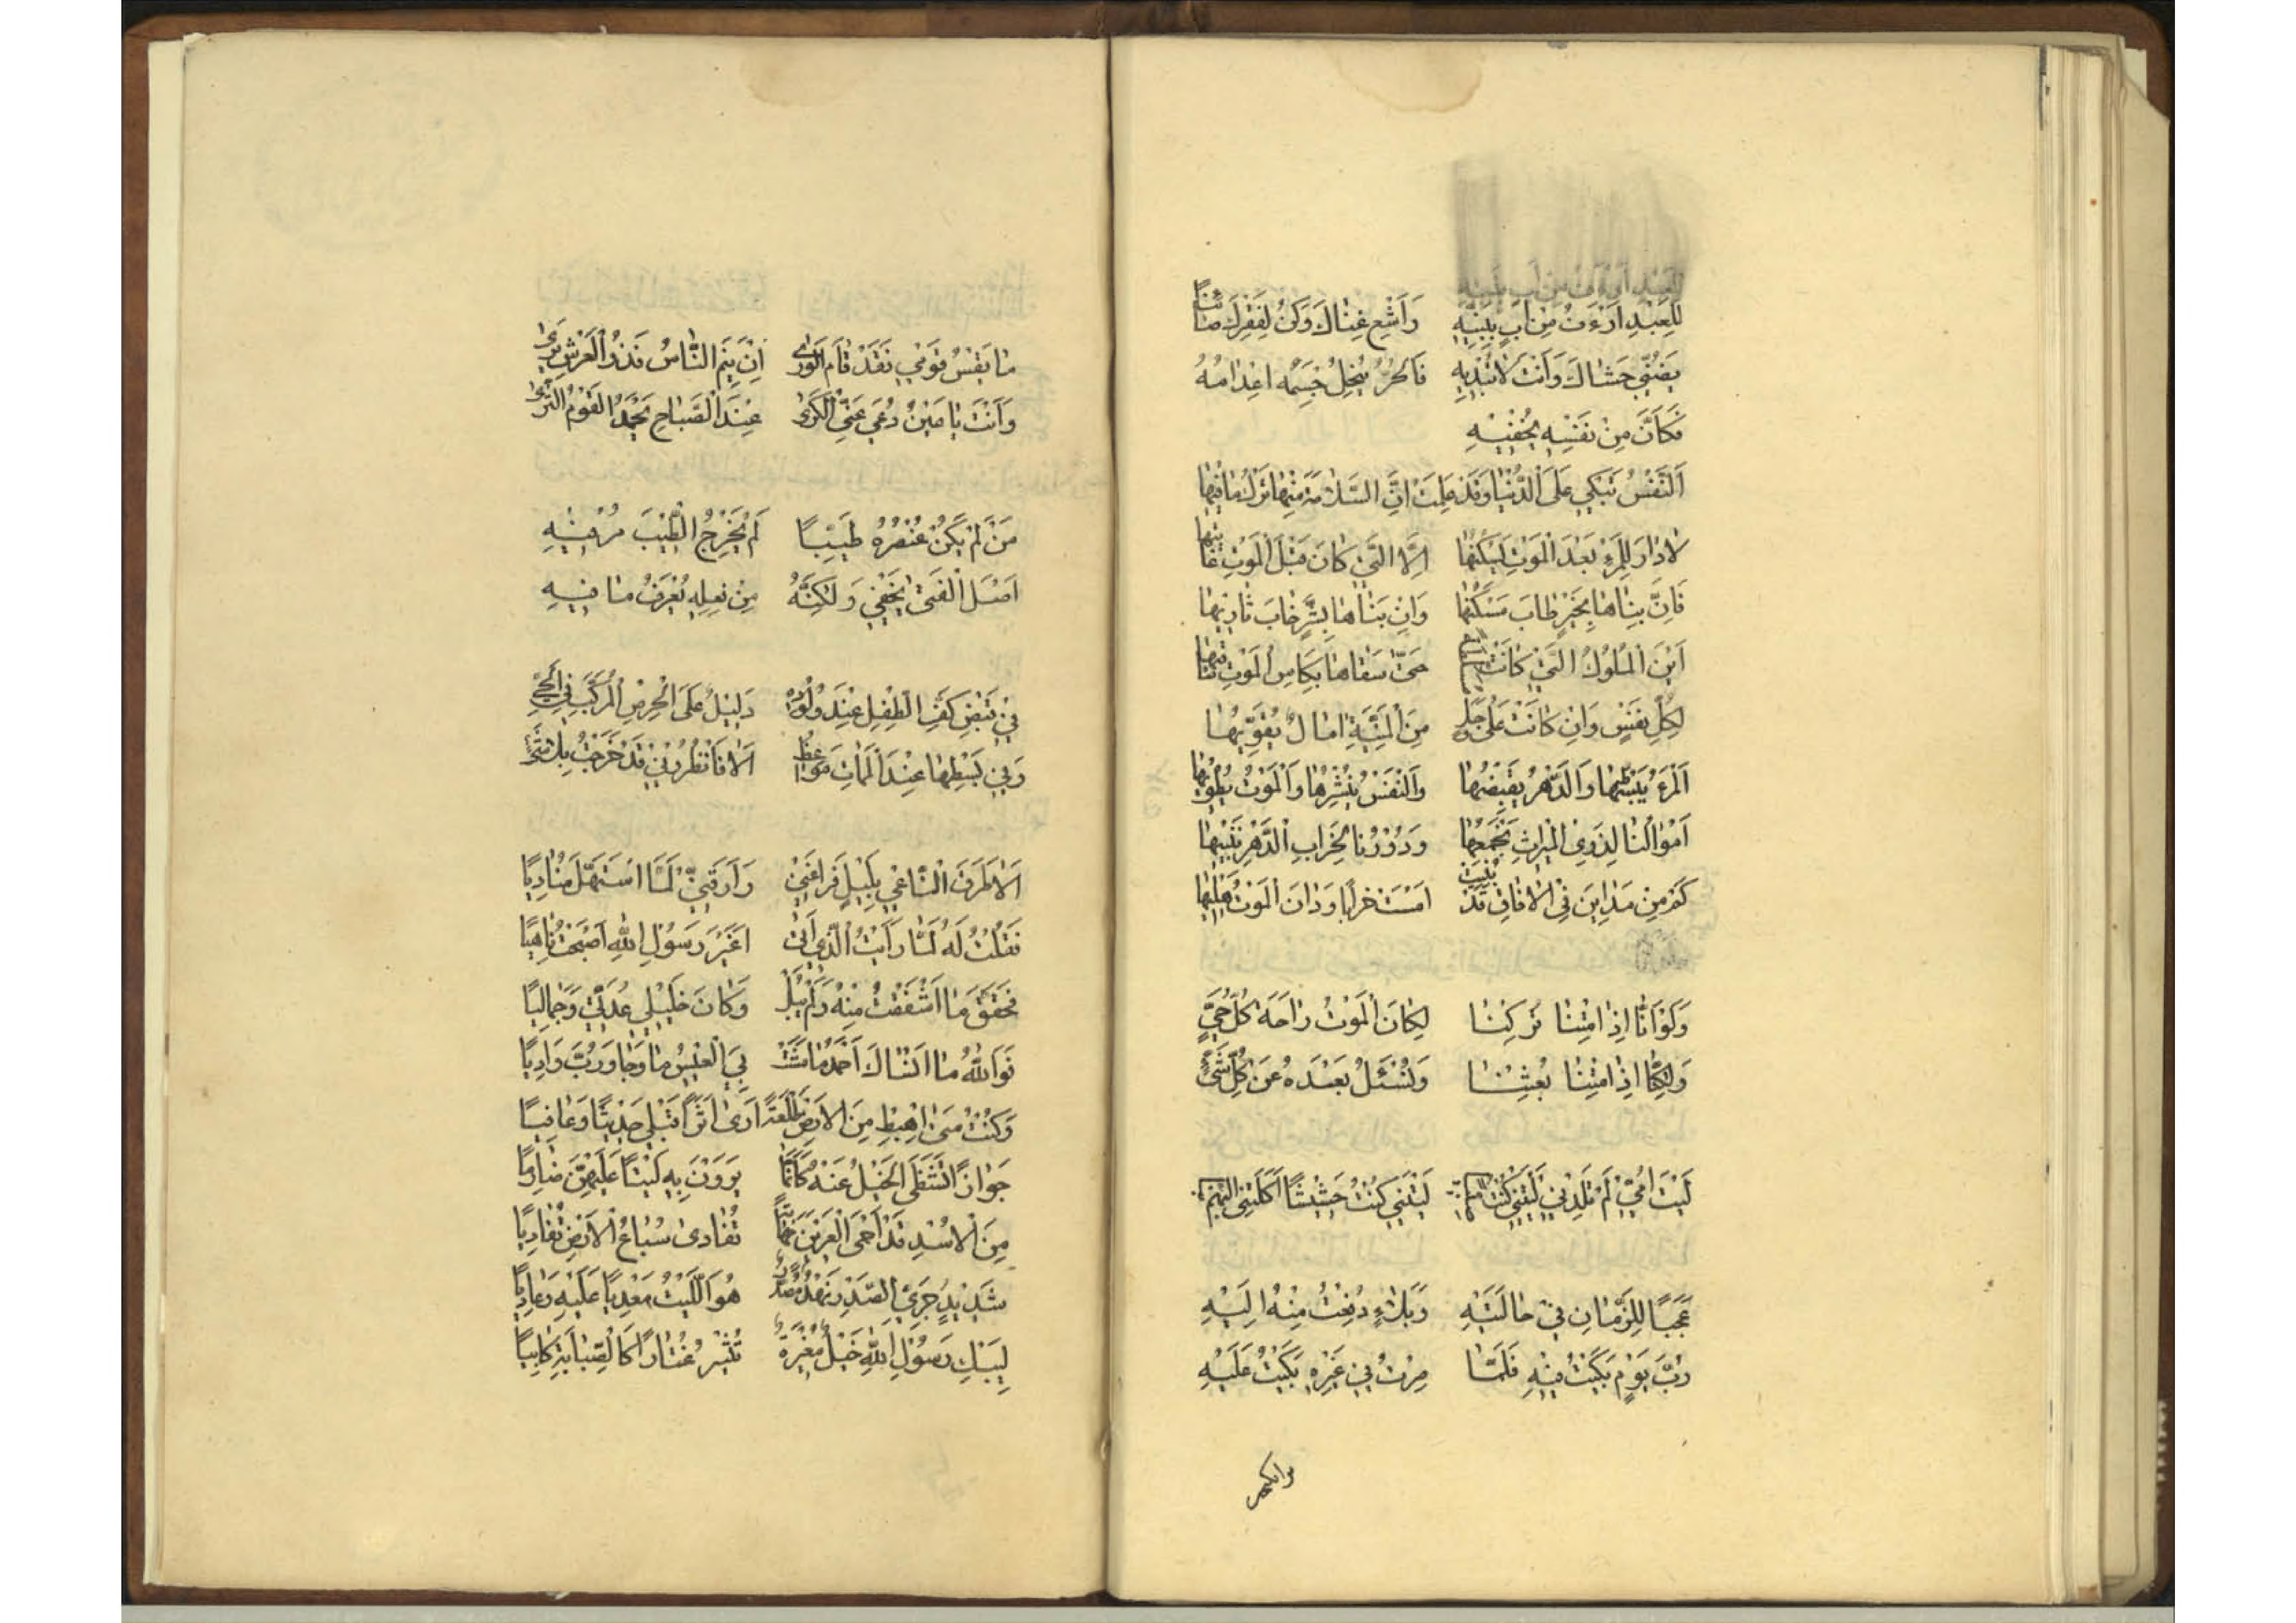 لِلعَبْدِ اَرْءَفُ مِنْ اَبٍ بِبَنِیْهِ وَاَشِعْ غِنَاكَ وَكُنْ لِفَقْرِكَ صَائِنًا
يَضْنِی حَشَاكَ وَاَنْتَ لَا تُبْدِیهِ فَالحُرُّ يَنْحِلُ جِسْمَهُ اِعْدَامُهُ
فَكَاَنَّ مِنْ نَفْسِهِ يُخْفِیْهِ
اَلنَّفْسُ تَبْكِي عَلَی الدُّنْيَا وَقَدْ عَلِمَتْ اِنَّ السَّلَامَةَ مِنْهَا تَرْكُ مَا فِيْهَا
لَا دَارَ لِلمَرْءِ بَعْدَ الْمَوْتِ يَسْكُنُهَا اِلَّا الَّتِي كَانَ قَبْلَ الْمَوْتِ بَانِيْهَا
فَاِنْ بَنَاهَا بِخَيْرٍ طَابَ مَسْكَنُهَا وَاِنْ بَنَاهَا بِشَرٍّ خَابَ ثَاوِيْهَا
اَيْنَ الْمُلُوكُ الَّتِي كَانَتْ حَتَّی سَقَاهَا بِكَاسِ الْمَوْتِ سَاقِيْهَا
لِكُلِّ نَفْسٍ وَاِنْ كَانَتْ عَلَی وَجَلٍ مِنَ الْمَنِيَّةِ اٰمَالٌ يُقَوِّيْهَا
اَلْمَرْءُ يَبْسُطُهَا وَالدَّهْرُ يَقْبِضُهَا وَالنَّفْسُ يَنْشُرُهَا وَالْمَوْتُ يَطْوِيْهَا
اَمْوَالُنَا لِذَوِی الْمِيْرَاثِ نَجْمَعُهَا وَدُوْرُنَا لِخَرَابِ الدَّهْرِ نَبْنِيْهَا
كَمْ مِنْ مَدَايِنَ فِی الْاٰفَاقِ قَدْ بُنِيَتْ اَمْسَتْ خَرَابًا وَدَانَ الْمَوْتُ اَهْلِيْهَا
وَلَوْ اَنَّا اِذَا مِتْنَا تُرِكْنَا لَكَانَ الْمَوْتُ رَاحَةَ كُلِّ حَيٍّ
وَلٰكِنَّا اِذَا مِتْنَا بُعِثْنَا وَنُسْئَلُ بَعْدَهُ عَنْ كُلِّ شَيْءٍ
لَيْتَ اُمِّي لَمْ تَلِدْنِي لَيْتَنِي كُنْتُ لَيْتَنِي كُنْتُ حَشِيْشًا اَكَلَتْنِی الْبُهْمُ
عَجَبًا لِلزَّمَانِ فِيْ حَالَتَيْهِ وَبَلَاءٍ دُفِعْتُ مِنْهُ اِلَيْهِ
رُبَّ يَوْمٍ بَكَيْتُ مِنْهِ فَلَمَّا صِرْتُ فِي غَيْرِهِ بَكَيْتُ عَلَيْهِ
مَا نَفْسُ قُوْمِي فَقَدْ قَامَ الْوَرٰی اِنْ يَنَمِ النَّاسُ فَذُو الْعَرْشِ يَرٰی
وَاَنْتَ يَا عَيْنُ دَعِي عَنِّي الْكَرٰی عِنْدَ الصَّبَاحِ يَحْمَدُ الْقَوْمُ السُّرٰی
مَنْ لَمْ يَكُنْ عُنْصُرُهُ طَيِّبًا لَمْ يَخْرُجِ الطِّيْبُ مِنْ فِيْهِ
اَصْلُ الْفَتٰی يَخْفِي وَلٰكِنَّهُ مِنْ فِعْلِهِ يُعْرَفُ مَا فِيْهِ
فِي قَبْضِ كَفِّ الطِّفْلِ عِنْدَ وُلُوْدِهِ دَلِيْلٌ عَلَی الْحِرْصِ الْمُرَكَّبِ فِی الْحَيِّ
وَفِي بَسْطِهَا عِنْدَ الْمَمَاتِ مَوَاعِظٌ اَلَا فَانْظُرُوْنِي قَدْ خَرَجْتُ بِلَا شَيٍّ
اَلَا طَرَقَ النَّاعِي بِلَيْلٍ فَرَاعَنِي وَاَرَّقَنِي لَمَّا اسْتَهَلَّ مُنَادِيًا
فَقُلْتُ لَهُ لَمَّا رَاَيْتُ الَّذِی اَتٰی اَغَيْرَ رَسُوْلِ اللّٰهِ اَصْبَحْتَ نَاعِيًا
فَحَقَّقَ مَا اَشْفَقْتُ مِنْهُ وَلَمْ يُبَلْ وَكَانَ خَلِيْلِي عُدَّتِي وَجَمَالِيَا
فَوَاللّٰهِ مَا اَنْسَاكَ اَحْمَدُ مَا مَشَتْ بِيَ الْعِيْسُ مَا وَجَاوَرْتُ وَادِيًا
وَكُنْتُ مَتٰی اَهْبِطْ مِنَ الْاَرْضِ تَلْعَةً اَرٰی اَثَرًا قَبْلِي حَدِيْثًا وَعَافِيًا
جَوَادًا تَشَظَّی الْخَيْلُ عَنْهُ كَاَنَّمَا يَرَوْنَ بِهِ لَيْثًا عَلَيْهِنَّ ضَارِيًا
مِنَ الْاُسْدِ قَدْ اَحْمَی الْعَرِيْنَ مَهَابَةً تُفَادِی سُبَاعُ الْاَرْضِ تَفَادِيًا
شَدِيْدٌ جَرِيْءُ الصَّدْرِ نَهْدٌ مُصَدَّرٌ هُوَ اللَّيْثُ مَعْدِيًّا عَلَيْهِ وَعَادِيًا
لِيَبْكِ رَسُوْلَ اللّٰهِ خَيْلٌ مُغِيْرَةٌ تُثِيْرُ غُبَارًا كَالضَّبَابَةِ كَابِيًا